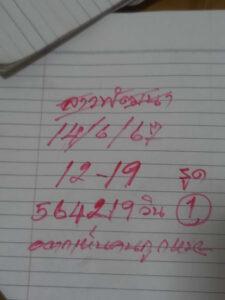 ลาวพัฒนา
14/6/67
12-19 รูด
564219 วิน ①